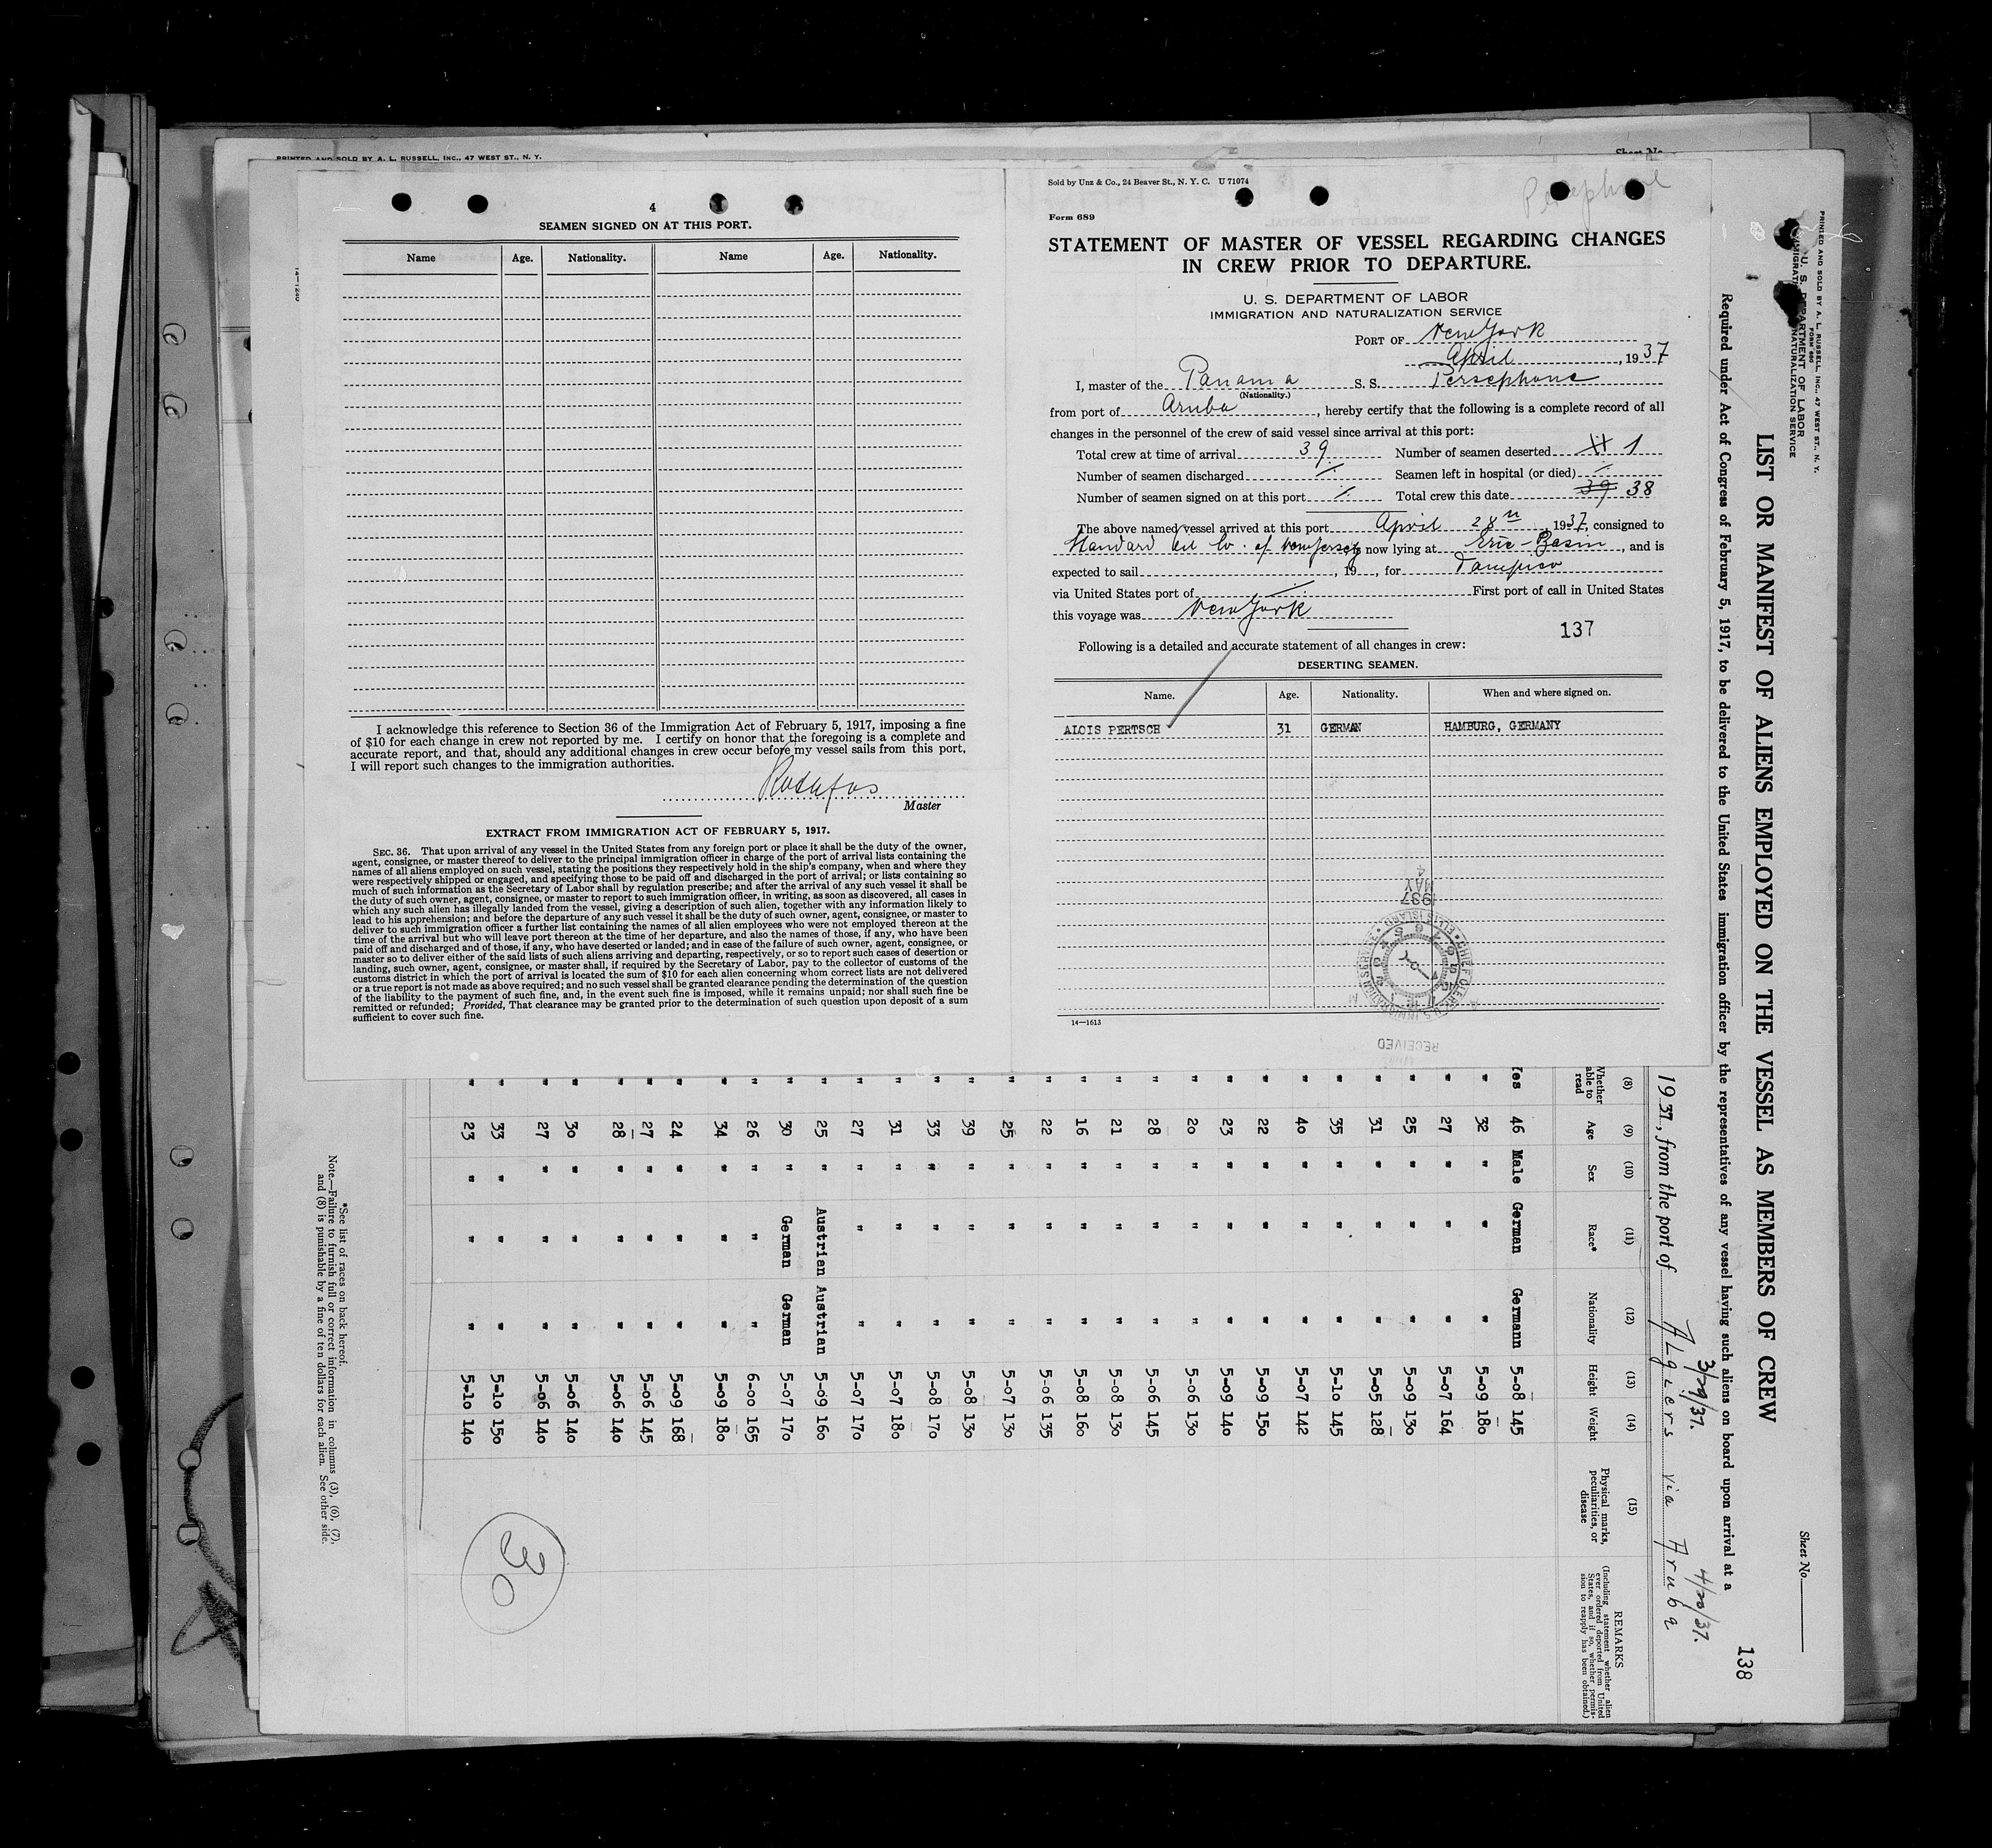 PRINTED AND SOLD BY A. L. RUSSELL, INC., 47 WEST ST., N. Y.
4
SEAMEN SIGNED ON AT THIS PORT.
Name Age. Nationality. Name Age. Nationality.
I acknowledge this reference to Section 36 of the Immigration Act of February 5, 1917, imposing a fine
of $10 for each change in crew not reported by me. I certify on honor that the foregoing is a complete and
accurate report, and that, should any additional changes in crew occur before my vessel sails from this port,
I will report such changes to the immigration authorities.
Master
EXTRACT FROM IMMIGRATION ACT OF FEBRUARY 5, 1917.
SEC. 36. That upon arrival of any vessel in the United States from any foreign port or place it shall be the duty of the owner,
agent, consignee, or master thereof to deliver to the principal immigration officer in charge of the port of arrival lists containing the
names of all aliens employed on such vessel, stating the positions they respectively hold in the ship's company, when and where they
were respectively shipped or engaged, and specifying those to be paid off and discharged in the port of arrival; or lists containing so
much of such information as the Secretary of Labor shall by regulation prescribe; and after the arrival of any such vessel it shall be
the duty of such owner, agent, consignee, or master to report to such immigration officer, in writing, as soon as discovered, all cases in
which any such alien has illegally landed from the vessel, giving a description of such alien, together with any information likely to
lead to his apprehension; and before the departure of any such vessel it shall be the duty of such owner, agent, consignee, or master to
deliver to such immigration officer a further list containing the names of all alien employees who were not employed thereon at the
time of the arrival but who will leave port thereon at the time of her departure, and also the names of those, if any, who have been
paid off and discharged and of those, if any, who have deserted or landed; and in case of the failure of such owner, agent, consignee, or
master so to deliver either of the said lists of such aliens arriving and departing, respectively, or so to report such cases of desertion or
landing, such owner, agent, consignee, or master shall, if required by the Secretary of Labor, pay to the collector of customs of the
customs district in which the port of arrival is located the sum of $10 for each alien concerning whom correct lists are not delivered
or a true report is not made as above required; and no such vessel shall be granted clearance pending the determination of the question
of the liability to the payment of such fine, and, in the event such fine is imposed, while it remains unpaid; nor shall such fine be
remitted or refunded; Provided, That clearance may be granted prior to the determination of such question upon deposit of a sum
sufficient to cover such fine.
Sold by Unz & Co., 24 Beaver St., N. Y. C. U 71074
Persephone
Form 689
STATEMENT OF MASTER OF VESSEL REGARDING CHANGES
IN CREW PRIOR TO DEPARTURE.
U. S. DEPARTMENT OF LABOR
IMMIGRATION AND NATURALIZATION SERVICE
PORT OF New York
April, 1937
I, master of the Panama S. S. Persephone
(Nationality.)
from port of Aruba, hereby certify that the following is a complete record of all
changes in the personnel of the crew of said vessel since arrival at this port:
Total crew at time of arrival 39 Number of seamen deserted 1
Number of seamen discharged / Seamen left in hospital (or died) /
Number of seamen signed on at this port / Total crew this date 39 38
The above named vessel arrived at this port April 28, 1937, consigned to
Standard Oil Co. of New Jersey now lying at Erie-Basin, and is
expected to sail , 19 , for Tampico
via United States port of / First port of call in United States
this voyage was New York
137
Following is a detailed and accurate statement of all changes in crew:
DESERTING SEAMEN.
Name. Age. Nationality. When and where signed on.
ALOIS PERTSCH 31 GERMAN HAMBURG, GERMANY
1937 MAY 4
RECEIVED
14—1613
Sheet No.
138
PRINTED AND SOLD BY A. L. RUSSELL, INC., 47 WEST ST., N. Y.
FORM 680
U. S. DEPARTMENT OF LABOR
IMMIGRATION NATURALIZATION SERVICE
LIST OR MANIFEST OF ALIENS EMPLOYED ON THE VESSEL AS MEMBERS OF CREW
Required under Act of Congress of February 5, 1917, to be delivered to the United States immigration officer by the representatives of any vessel having such aliens on board upon arrival at a
3/29/37. 4/20/37.
1937, from the port of Algiers via Aruba
(8) (9) (10) (11) (12) (13) (14) (15)
Whether able to read Age Sex Race* Nationality Height Weight Physical marks, peculiarities, or disease REMARKS
(Including statement whether alien ever ordered deported from United States, and if so, whether permission to reapply has been obtained.)
Yes 46 Male German Germann 5-08 145
" 32 " " " 5-09 180
" 27 " " " 5-07 164
" 25 " " " 5-09 130
" 31 " " " 5-05 128
" 35 " " " 5-10 145
" 40 " " " 5-07 142
" 22 " " " 5-09 150
" 23 " " " 5-09 140
" 20 " " " 5-06 130
" 28 " " " 5-06 145
" 21 " " " 5-08 130
" 16 " " " 5-08 160
" 22 " " " 5-06 135
" 25 " " " 5-07 130
" 39 " " " 5-08 130
" 33 " " " 5-08 170
" 31 " " " 5-07 180
" 27 " " " 5-07 170
" 25 " Austrian Austrian 5-09 160
" 30 " German German 5-07 170
" 26 " " " 6-00 165
" 34 " " " 5-09 180
" 24 " " " 5-09 168
" 27 " " " 5-06 145
" 28 " " " 5-06 140
" 30 " " " 5-06 140
" 27 " " " 5-06 140
" 33 " " " 5-10 150
" 23 " " " 5-10 140
30
*See list of races on back hereof.
Note.—Failure to furnish full or correct information in columns (3), (6), (7),
and (8) is punishable by a fine of ten dollars for each alien. See other side.